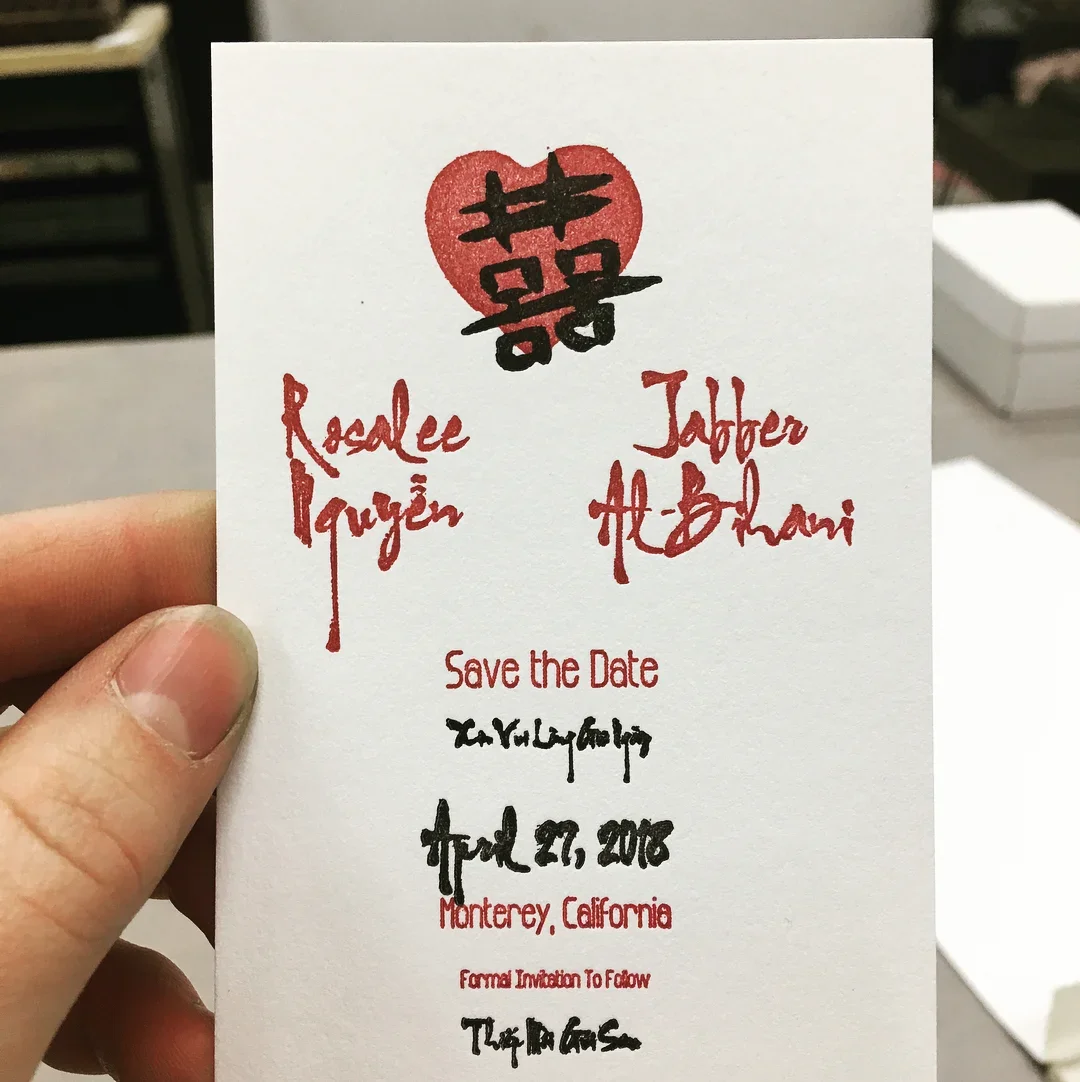 囍
Rosalee Nguyễn
Jabber Al-Bihani
Save the Date
Xin Vui Lòng Giữ Ngày
April 27, 2018
Monterey, California
Formal Invitation To Follow
Thiệp Mời Gửi Sau